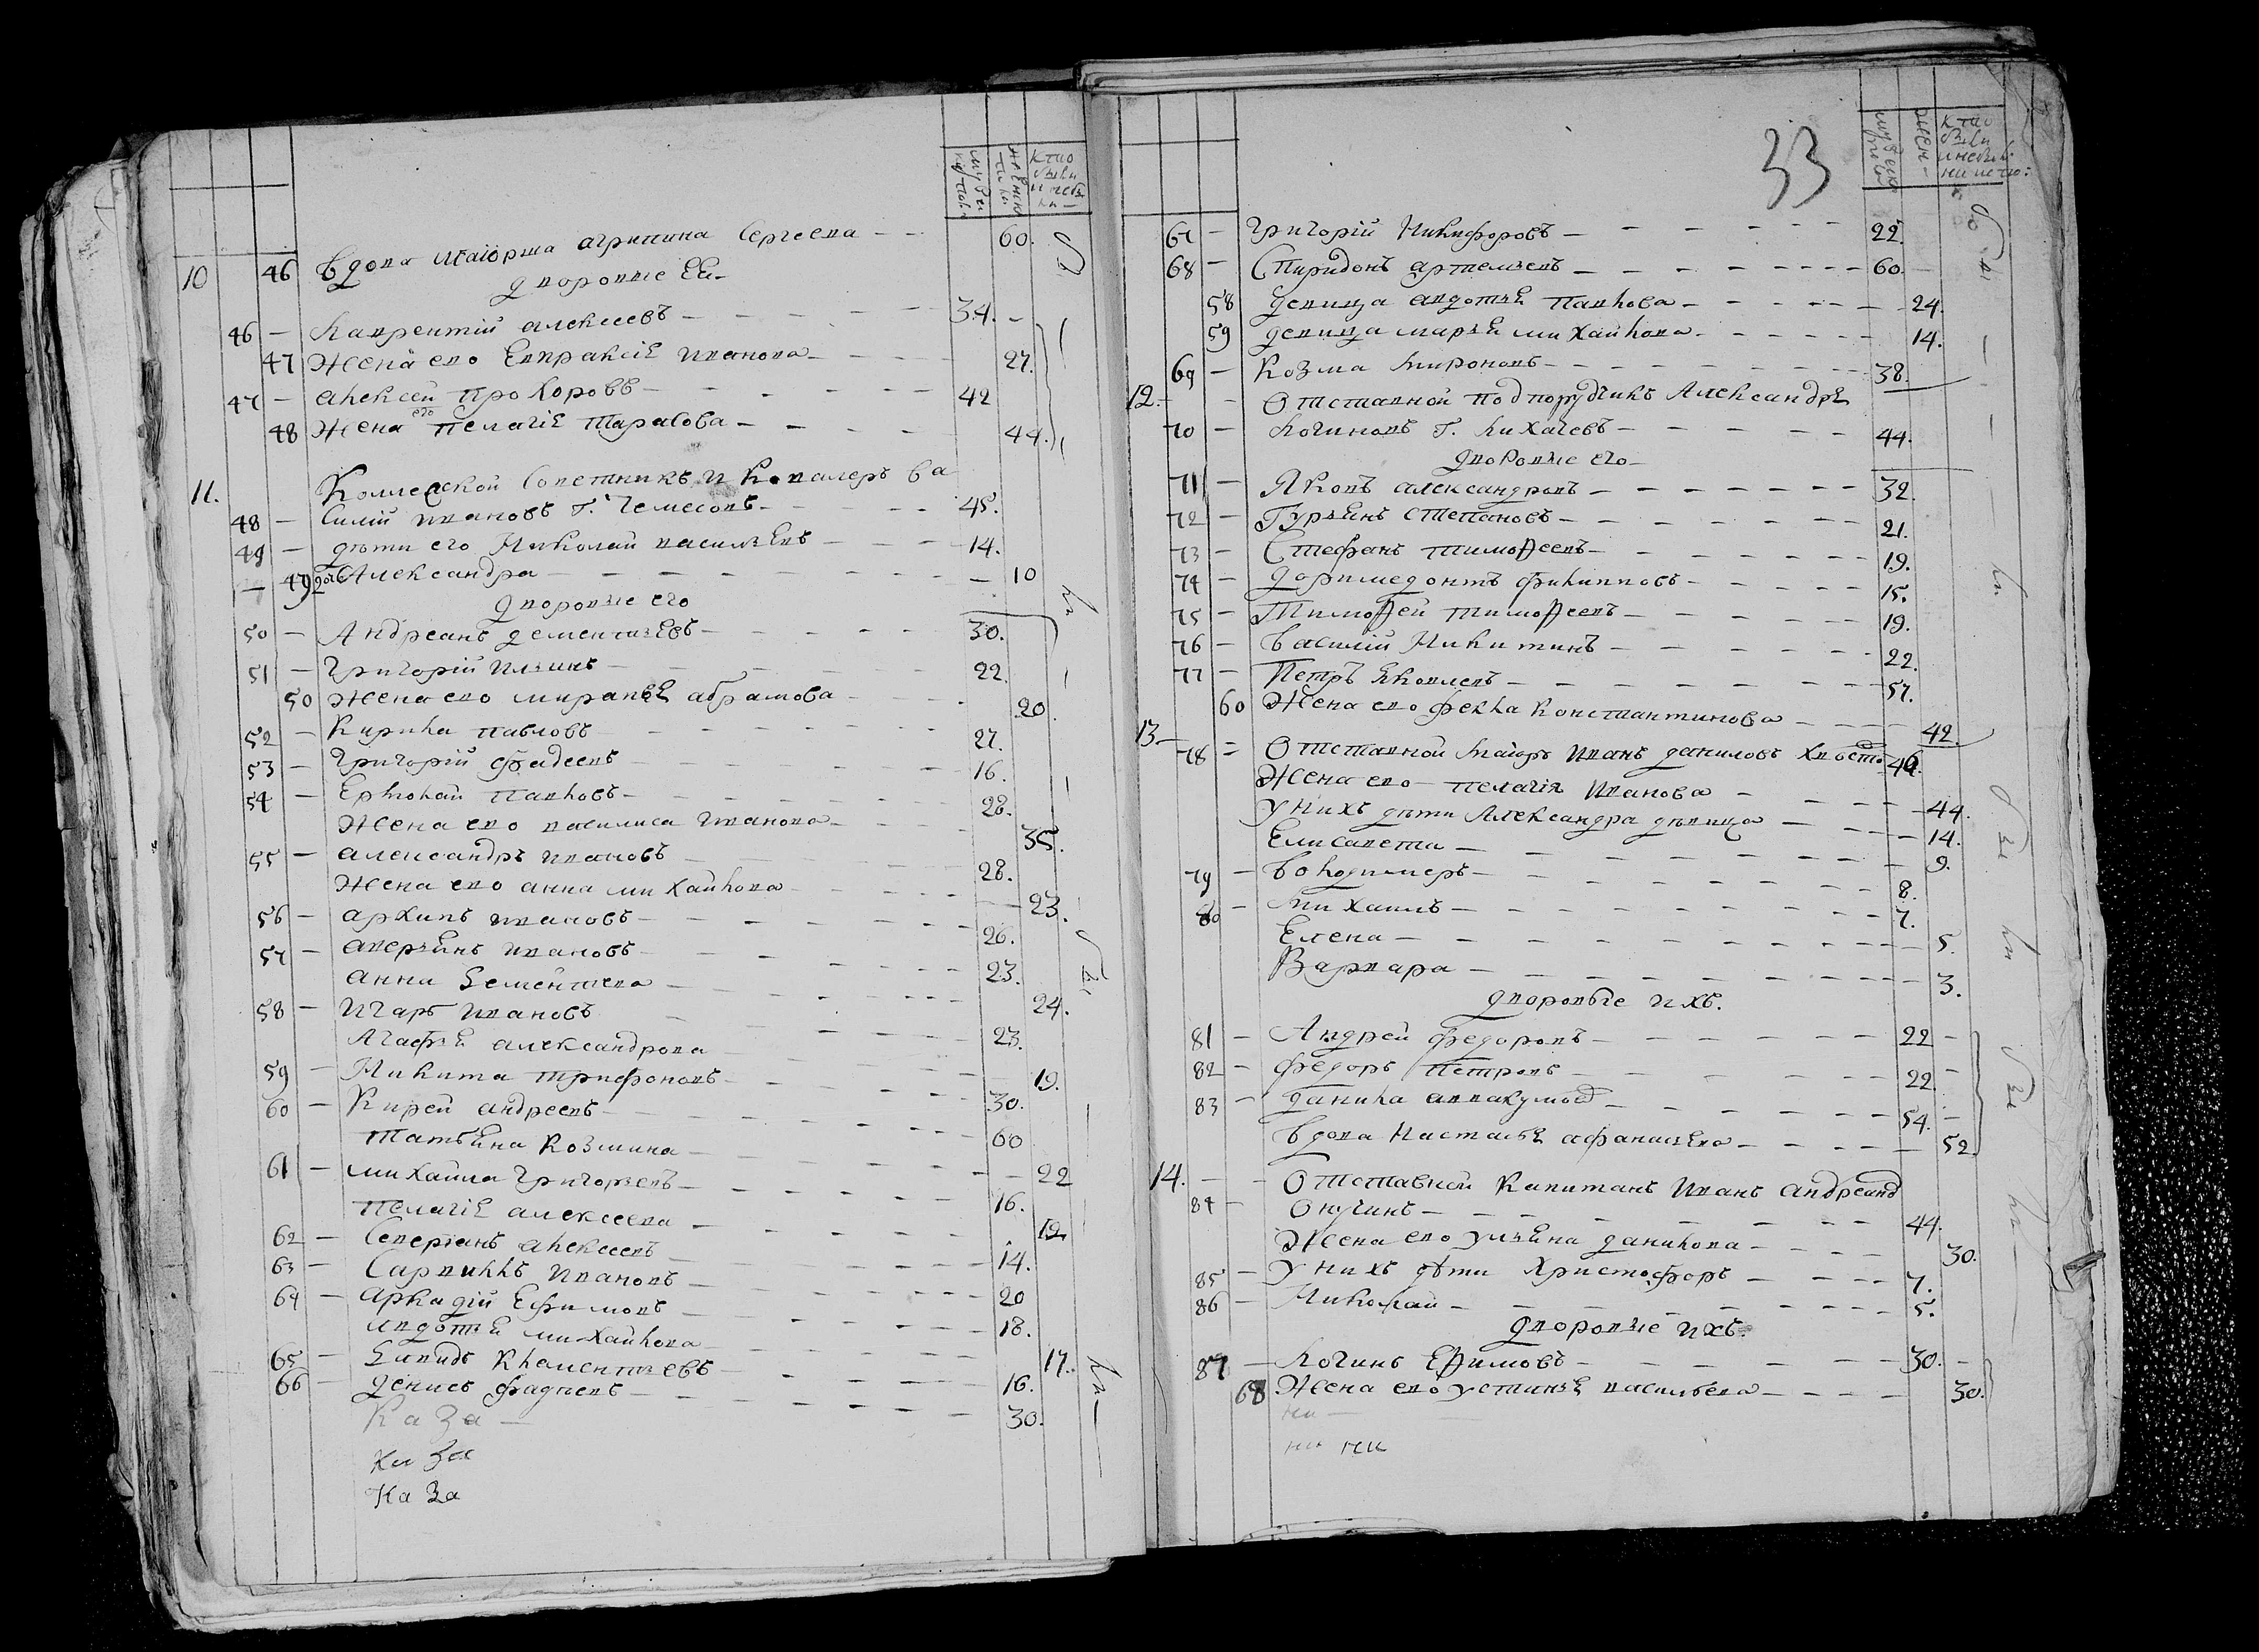 мужеска
женска
кто были
10 46 Вдова маiорша агрипина Сергеева — — 60.
дворовые ЕЕ —
46 — Лаврентiй алексеевъ — 34. —
47 Жена ево Евпраксiя иванова — 27.
47 — алексей прохоровъ — 42
48 Жена его пелагiя тарасова — 44.
11. Коллеской Советникъ и Кавалеръ ва
48 — силiй ивановъ г. Чемесовъ — 45.
49 — дѣти его Николай васильевъ — 14.
— 49 дочь Александра — 10
дворовые его
50 — Андреанъ дементьевъ — 30.
51 — Григорiй ильинъ — 22.
50 Жена ево абрамова — 20.
52 — Кирила павловъ — 27.
53 — Григорiй фадеевъ — 16.
54 — Ермолай павловъ — 28.
Жена ево василиса иванова — 35.
55 — александръ ивановъ — 28.
Жена ево анна михайлова — 23.
56 — архипъ ивановъ — 26.
57 — аверьянъ ивановъ — 23.
анна дементьева — 24.
58 — Игарь ивановъ — 23.
Агафья александрова — 19.
59 — Никита трифоновъ — 30.
60 — Кирей андреевъ — 60
татьяна козмина — 22
61 — михайла григорьевъ — 16.
пелагiя алексеева — 19
62 — Северьянъ алексеевъ — 14.
63 — Ивановъ — 20
64 — аркадiй Ефимовъ — 18.
авдотья михайлова — 17.
65 — давидъ клементьевъ — 16.
66 — денисъ фадеевъ — 30.
Ка За —
Ка За
На За
33
мужеска
женс
кто были
67 — Григорiй Никифоровъ — 22.
68 — Спиридонъ артемьевъ — 60.
58 девица авдотья павлова — 24.
59 девица марья михайлова — 14.
69 — Козма мироновъ — 38.
12. — Отставной подпорудчикъ Александръ
70 — логиновъ г. лихачевъ — 44.
дворовые его —
71 — Яковъ александровъ — 32.
72 — Гурьянъ степановъ — 21.
73 — Стефанъ тимоѳеевъ — 19.
74 — Доримедонтъ филипповъ — 15.
75 — Тимоѳей тимоѳеевъ — 19.
76 — Василiй Никитинъ — 22.
77 — Петръ яковлевъ — 57.
60 Жена ево фекла константинова — 42.
13. —
78 — Отставной маiоръ иванъ даниловъ хвосто
Жена ево пелагiя иванова — 44.
у нихъ дѣти Александра девица — 14.
Елисавета — 9.
79 — Володимеръ — 8.
80 — михаилъ — 7.
Елена — 5.
Варвара — 3.
дворовые ихъ.
81 — Андрей федоровъ — 22 —
82 — федоръ петровъ — 22. —
83 — данила аввакумов — 54. —
Вдова Настасья афанасьева — 52
14. — Отставной Капитанъ иванъ андреянов
84 — Онучинъ — 44.
Жена ево ульяна данилова — 30.
85 — У нихъ дѣти Христофоръ — 7.
86 — Николай — 5.
дворовые ихъ.
87 — логинъ Еѳимовъ — 30. —
68 Жена ево устинья васильева — 30.
на —
на на